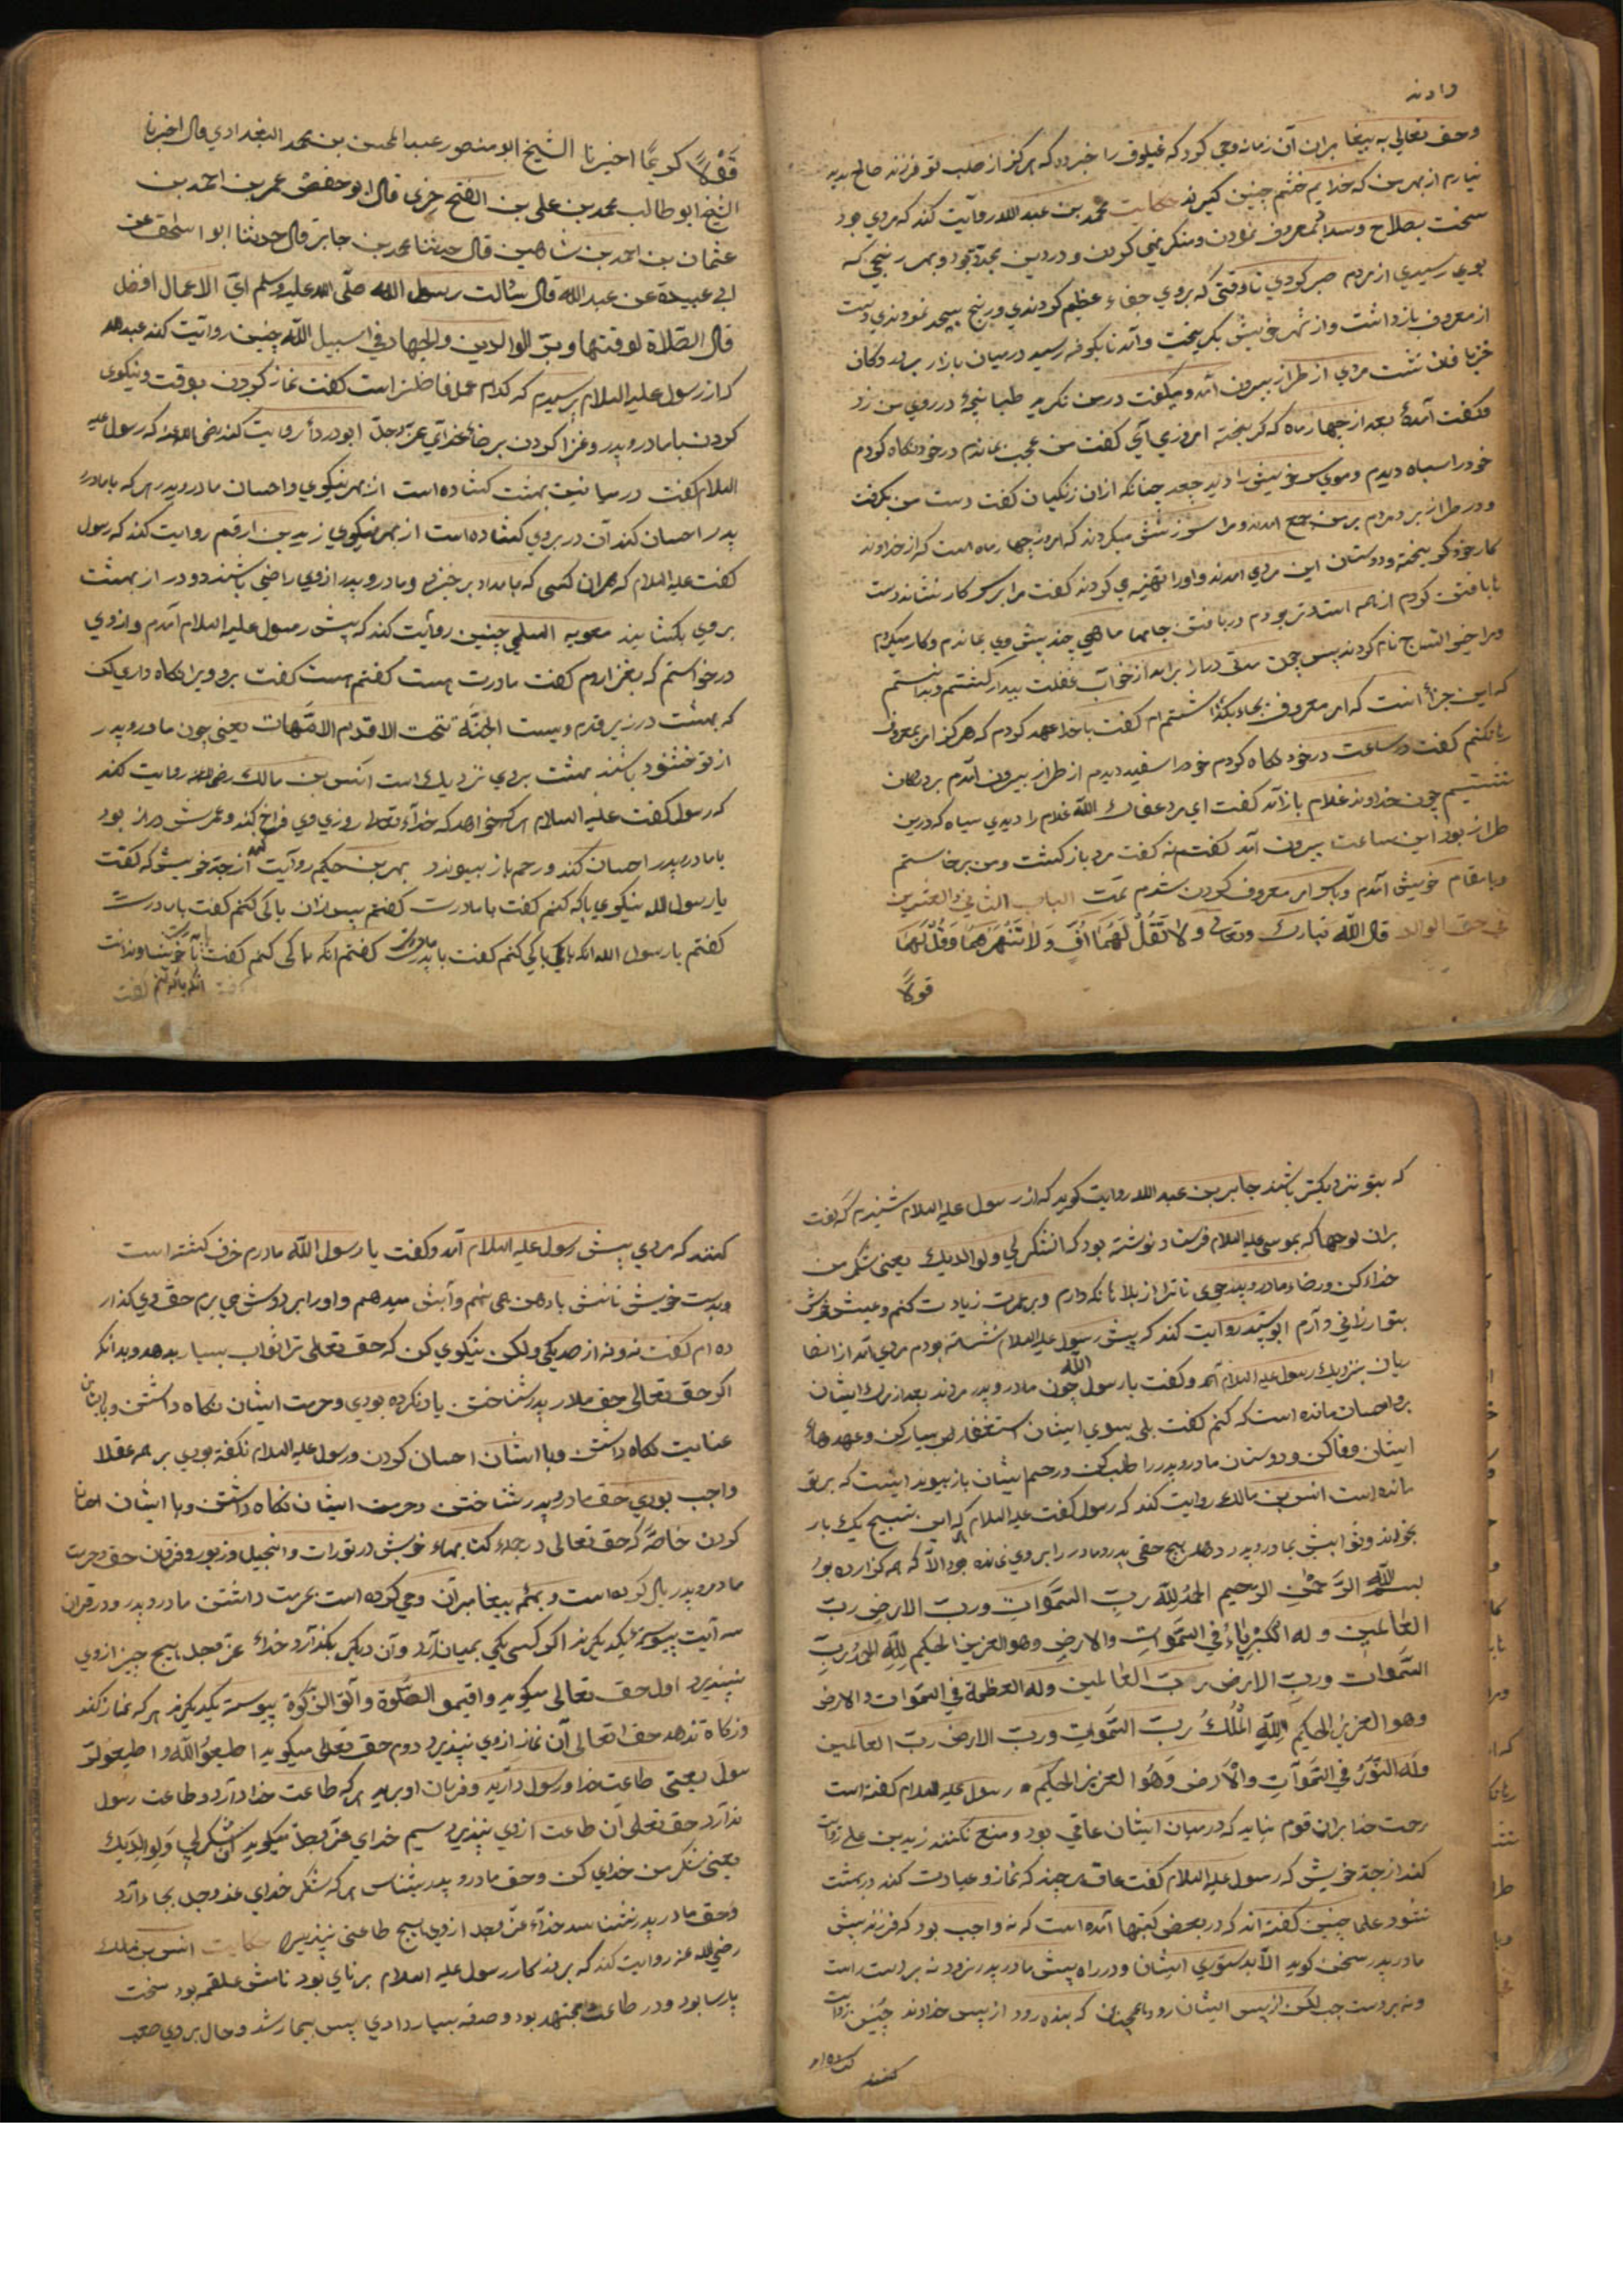 دادند
وحق تعالی به پیغامبران آن زمانه وحی کرد که فیلوق را خبر ده که هرکز از صلب تو فرزند صالح پدید
نیارم از بهر من که خدایم خشم چنین کیرند حکایت محمد بن عبد الله روایت کند که مردی بود
سخت بصلاح و معروف نمودن و منکر نهی کردن و در دین بجد بود و بهر رنجی که
بوی رسیدی از مردم صبر کردی تا وقتی که بروی جفاء عظیم کردندی و رنج بیحد نمودندی دست
از معروف بازداشت و از شهر خویش بکریخت و آمد تا بکوفه رسید در میان بازار بر در دکان
خزبافان مردی از طراز بیرون آمد و میکفت در من نکرید طبانچهٔ در روی من زد
فکفت آمدهٔ بعد از چهار ماه که کریخته امروز می آی کفت من عجب بماندم در خود نکاه کردم
خود را سیاه دیدم و موی سر خویش را دیدم جعد چنانکه از آن زنکیان کفت دست من بکرفت
و در طراز برد مردم بر من جمع آمدند و مرا سرزنش میکردند که امروز چهار ماه است که از خداوند
کار خود کریخته و دوستان این مرد می آمدند و او را تهنیه می کردند کفت مرا بر سر کار نشاند دست
تا بافتن کردم از همه استادتر بودم در بافتن جامها ماهی چند پیش وی بماندم و کار میکردم
و مرا خیر النساج نام کردند پس چون مدتی دراز برآمد از خواب غفلت بیدار کشتم و بدانستم
که این جزاء آنست که امر معروف بجای بکذاشته ام کفت با خدا عهد کردم که هرکز امر بمعروف
رها نکنم کفت در ساعت در خود نکاه کردم خود را سفید دیدم از طراز بیرون آمدم بر دکان
نشستم چون خداوند غلام باز آمد کفت ای مرد عفاک الله غلام را دیدی سیاه که درین
طراز بود این ساعت بیرون آمد کفتم نه کفت مرد باز کشت و من برخاستم
و بامقام خویش آمدم و باسر امر معروف کردن شدم تمت الباب الثانی والعشرین
فی حق الوالد قال الله تبارک وتعالی ولا تقل لهما اف ولا تنهرهما وقل لهما
قولاً
قَوْلاً کریمًا اخبرنا الشیخ ابو منصور عبد المحسن بن محمد البغدادی قال اخبرنا
الشیخ ابو طالب محمد بن علی بن الفتح حربی قال ابو حفص عمر بن احمد بن
عثمان بن احمد بن شاهین قال حدثنا محمد بن جابر قال حدثنا ابو اسحق عن
ابی عبیدة عن عبد الله قال سالت رسول الله صلی الله علیه وسلم ای الاعمال افضل
قال الصلاة لوقتها وبر الوالدین والجهاد فی سبیل الله چنین روایت کند عبد الله
که از رسول علیه السلام پرسیدم که کدام عمل فاضلتر است کفت نماز کردن بوقت و نیکوی
کردن با مادر و پدر و غزا کردن بر رضاء خدای عز وجل ابو دردأ روایت کند رضی الله عنه که رسول علیه
السلام کفت در میانین بهشت کشاده است از بهر نیکوی و احسان مادر و پدر هر که با مادر
پدر احسان کند آن در بروی کشاده است از بهر نیکوی زید بن ارقم روایت کند که رسول
کفت علیه السلام که هران کسی که بامداد برخیزد و مادر و پدر از وی راضی باشند دو در از بهشت
بروی بکشایند معویه السلمی چنین روایت کند که پیش رسول علیه السلام آمدم و از وی
درخواستم که بغزا روم کفت مادرت هست کفتم هست کفت برو ویرا نکاه داری کن
که بهشت در زیر قدم ویست الجنة تحت الاقدام الامهات یعنی چون مادر و پدر
از تو خشنود باشند بهشت بروی نزدیک است انس بن مالک رضی الله عنه روایت کند
که رسول کفت علیه السلام هرکه خواهد که خدای تعالی روزی وی فراخ کند و عمرش دراز بود
با مادر پدر احسان کند و رحم باز پیوندد بهز بن حکیم روایت کند از جد خویش که کفت
یا رسول الله نیکوی با که کنم کفت با مادرت کفتم پس ازان با کی کنم کفت با مادرت
کفتم یا رسول الله انکه با کی کنم کفت با پدرت کفتم انکه با کی کنم کفت با خویشاوندانت
که بتو نزدیکتر باشند جابر بن عبد الله روایت کوید که از رسول علیه السلام شنیدم که کفت
بران لوحها که بموسی علیه السلام فرستاد نوشته بود که ان اشکر لی ولوالدیک یعنی شکر من
خدا کن و رضاء مادر و پدر جوی تا ترا از بلاها نکه دارم و بر عمرت زیادت کنم و عیش خوش
بتو ارزانی دارم ابو سید روایت کند که پیش رسول علیه السلام نشسته بودم مردی آمد از انصا
ریان بنزدیک رسول علیه السلام آمد و کفت یا رسول الله چون مادر و پدر مردند بعد از مرک ایشان
بر و احسان مانده است که کنم کفت بلی بسوی ایشان استغفار بسیار کن و عهدهاء
ایشان وفا کن و دوستان مادر و پدر را طلب کن و رحم ایشان باز پیوند اینست که بر تو
مانده است انس بن مالک روایت کند که رسول کفت علیه السلام هر که این تسبیح یک بار
بخواند و ثوابش بمادر و پدر دهد هیچ حقی پدر و مادر را بر وی نمانده بود الا که همه کزارده بود
بسم الله الرحمن الرحیم الحمد لله رب السموات ورب الارض رب
العالمین وله الکبریاء فی السموات والارض وهو العزیز الحکیم لله الحمد رب
السموات ورب الارض رب العالمین وله العظمة فی السموات والارض
وهو العزیز الحکیم لله الملک رب السموات ورب الارض رب العالمین
وله النور فی السموات والارض وهو العزیز الحکیم رسول علیه السلام کفته است
رحمت خدا بران قوم نیاید که در میان ایشان عاقی بود و منع نکنند زید بن علی روایت
کند از جد خویش که رسول علیه السلام کفت عاق هرچند که نماز و عبادت کند در بهشت
نشود علما چنین کفته اند که در بعضی کتبها آمده است که نه واجب بود که فرزند پیش
مادر پدر سخن کوید الا بدستوری ایشان و در راه پیش مادر پدر نرود نه بر دست راست
و نه بر دست چپ لکن از پس ایشان رود همچنان که بنده رود از پس خداوند چنین روایت
کنند
کنند که مردی پیش رسول علیه السلام آمد و کفت یا رسول الله مادرم خرف کشته است
و بدست خویش نانش بادهن می نهم و آبش میدهم و او را بر دوش می برم حق وی کذار
ده ام کفت نه و نه از صد یکی ولکن نیکوی کن که حق تعالی ترا ثواب بسیار بدهد و بدانکه
اکر حق تعالی حق مادر پدر شناختن یاد نکرده بودی و حرمت ایشان نکاه داشتن و با ایشان
عنایت نکاه داشتن و با ایشان احسان کردن و رسول علیه السلام نکفته بودی بر همه عقلا
واجب بودی حق مادر و پدر شناختن و حرمت ایشان نکاه داشتن و با ایشان احسان
کردن خاصه که حق تعالی در جمله کتابهاء خویش در تورات و انجیل و زبور و فرقان حق و حرمت
مادر و پدر یاد کرده است و بهمه پیغامبران وحی کرده است بحرمت داشتن مادر و پدر و در قرآن
سه آیت پیوسته یکدیکرند اکر کسی یکی بمیان آرد و آن دیکر بکذارد خداء عز وجل هیچ چیز از وی
نپذیرد اول حق تعالی میکوید واقیمو الصلوة وآتو الزکوة پیوسته یکدیکرند هر که نماز کند
و زکاة ندهد حق تعالی آن نماز از وی نپذیرد دوم حق تعالی میکوید اطیعوا الله واطیعوا الر
سول یعنی طاعت خدا و رسول دارید و فرمان او برید هر که طاعت خدا دارد و طاعت رسول
ندارد حق تعالی ان طاعت از وی نپذیرد سیم خدای عز وجل میکوید ان اشکر لی ولوالدیک
یعنی شکر من خدای کن و حق مادر و پدر بشناس هر که شکر خدای عز وجل بجاء آرد
و حق مادر پدر نشناسد خداء عز وجل از وی هیچ طاعتی نپذیرد حکایت انس بن مالک
رضی الله عنه روایت کند که بروزکار رسول علیه السلام برنای بود نامش علقمه بود سخت
پارسا بود و در طاعت مجتهد بود و صدقه بسیار دادی پس بیمار شد و حال بروی صعب